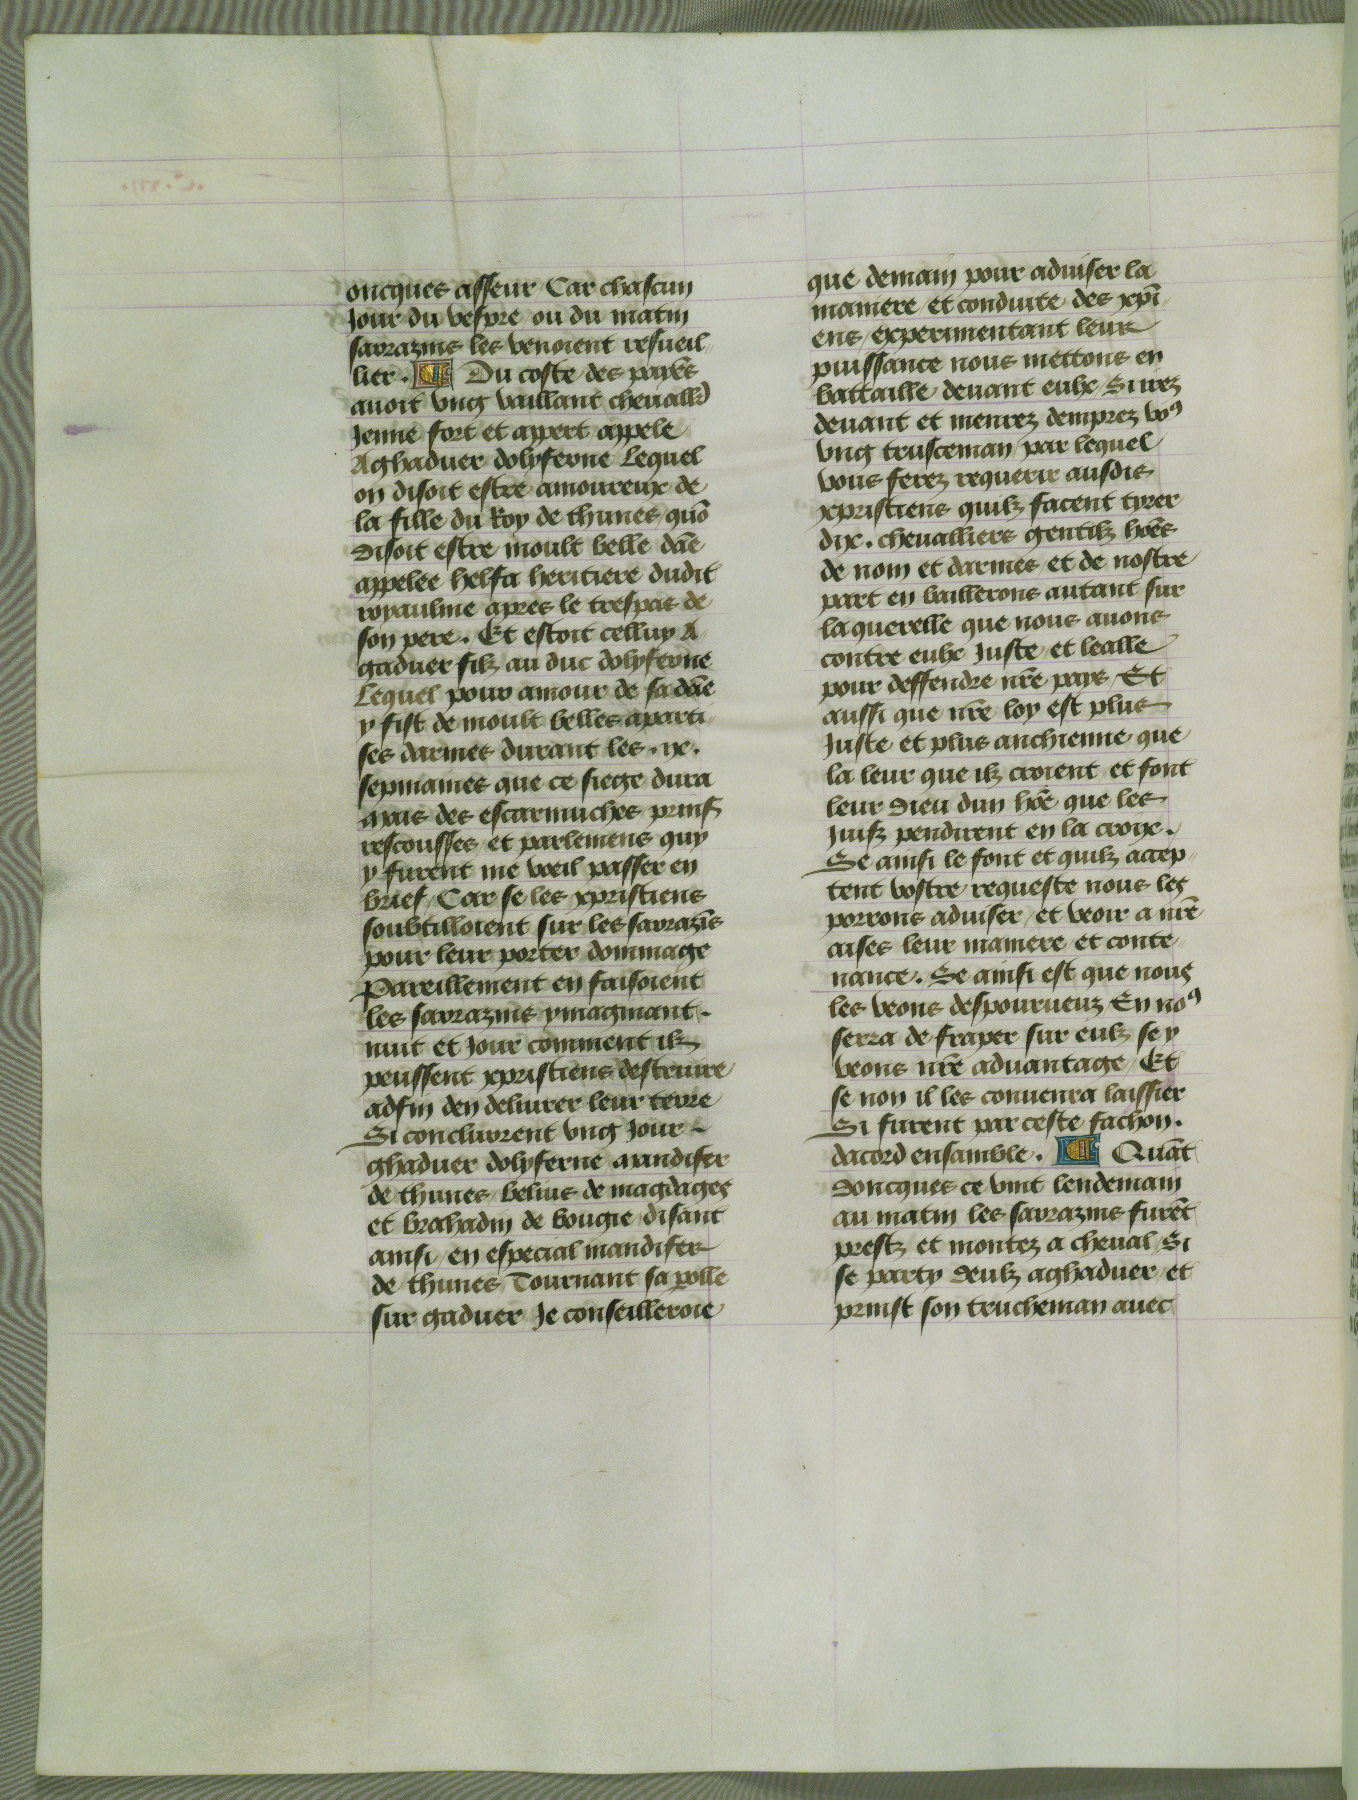 oncques asseur Car chascun
Jour du vespre ou du matin
sarrazins les venoient resueil-
lier. Du coste des payes
auoit vng vaillant cheuall
Jenne fort et appert appele
Aghaduer dolyferne Lequel
on disoit estre amoureux de
la fille du Roy de thunes quō
disoit estre moult belle dāe
appelee helsa heritiere dudit
royaulme apres le trespas de
son pere. Et estoit celluy A
gaduer filz au duc dolyferne
Lequel pour amour de sa dāe
y fist de moult belles aperti
ses darmes durant les .ix.
sepmaines que ce siege dura
mais des escarmuches prinss
rescousses et parlemens quy
y furent me voeil passer en
brief / Car se les xpristiens
soubtilloient sur les sarrazīs
pour leur porter dommage
Pareillement en faisoient
les sarrazins ymaginant.
nuit et Jour comment ilz
peussent xpristiens destruire
adfin den deliurer leur terre
Si conclurrent vng Jour
ghaduer dolyferne mandifer
de thunes / belius de magdages
et brahadin de bougie / disant
ainsi / en especial mandifer
de thunes Tournant sa polle
sur gaduer Je conseilleroie
que demain pour aduiser la
maniere et conduite des xpi
ens / experimentant leur
puissance nous mettons en
battaille deuant eulx / Si irez
deuant et menrez demprez vo⁹
vng trusceman / par lequel
vous ferez requerir ausdis
xpristiens quilz facent tirer
dix. cheualliers gentilz hōes
de nom et darmes et de nostre
part en baillerons autant sur
la querelle que nous auons
contre eulx Juste et lealle
pour deffendre nrē pays Et
aussi que nrē loy est plus
Juste et plus anchienne que
la leur que ilz croient et font
leur dieu dun hōe que les
Juifz pendirent en la croix.
Se ainsi le font et quilz accep-
tent vostre requeste nous les
porrons aduiser / et veoir a nrē
aises leur maniere et conte
nance. Se ainsi est que nous
les veons despourueuz En no⁹
serra de fraper sur eulz se y
veons nrē aduantage / Et
se non il les conuenra laissier
Si furent par ceste fachon.
dacord ensamble. Quāt
doncques ce vint lendemain
au matin les sarrazins furēt
prestz et montez a cheual / Si
se party deulz aghaduer / et
prinst son trucheman auec